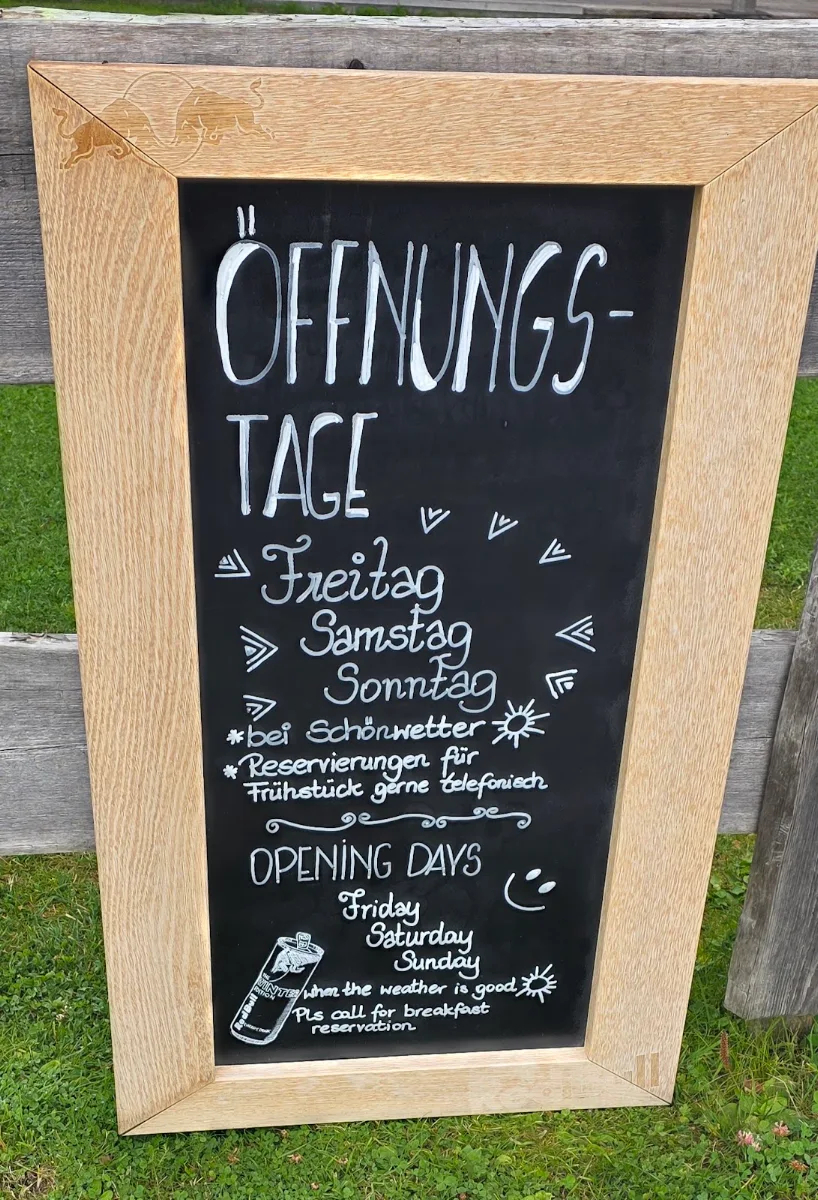 ÖFFNUNGS-
TAGE
Freitag
Samstag
Sonntag
*bei Schönwetter
*Reservierungen für
Frühstück gerne telefonisch
OPENING DAYS
Friday
Saturday
Sunday
when the weather is good
Pls call for breakfast
reservation
THE
WINTER
EDITION
Red Bull